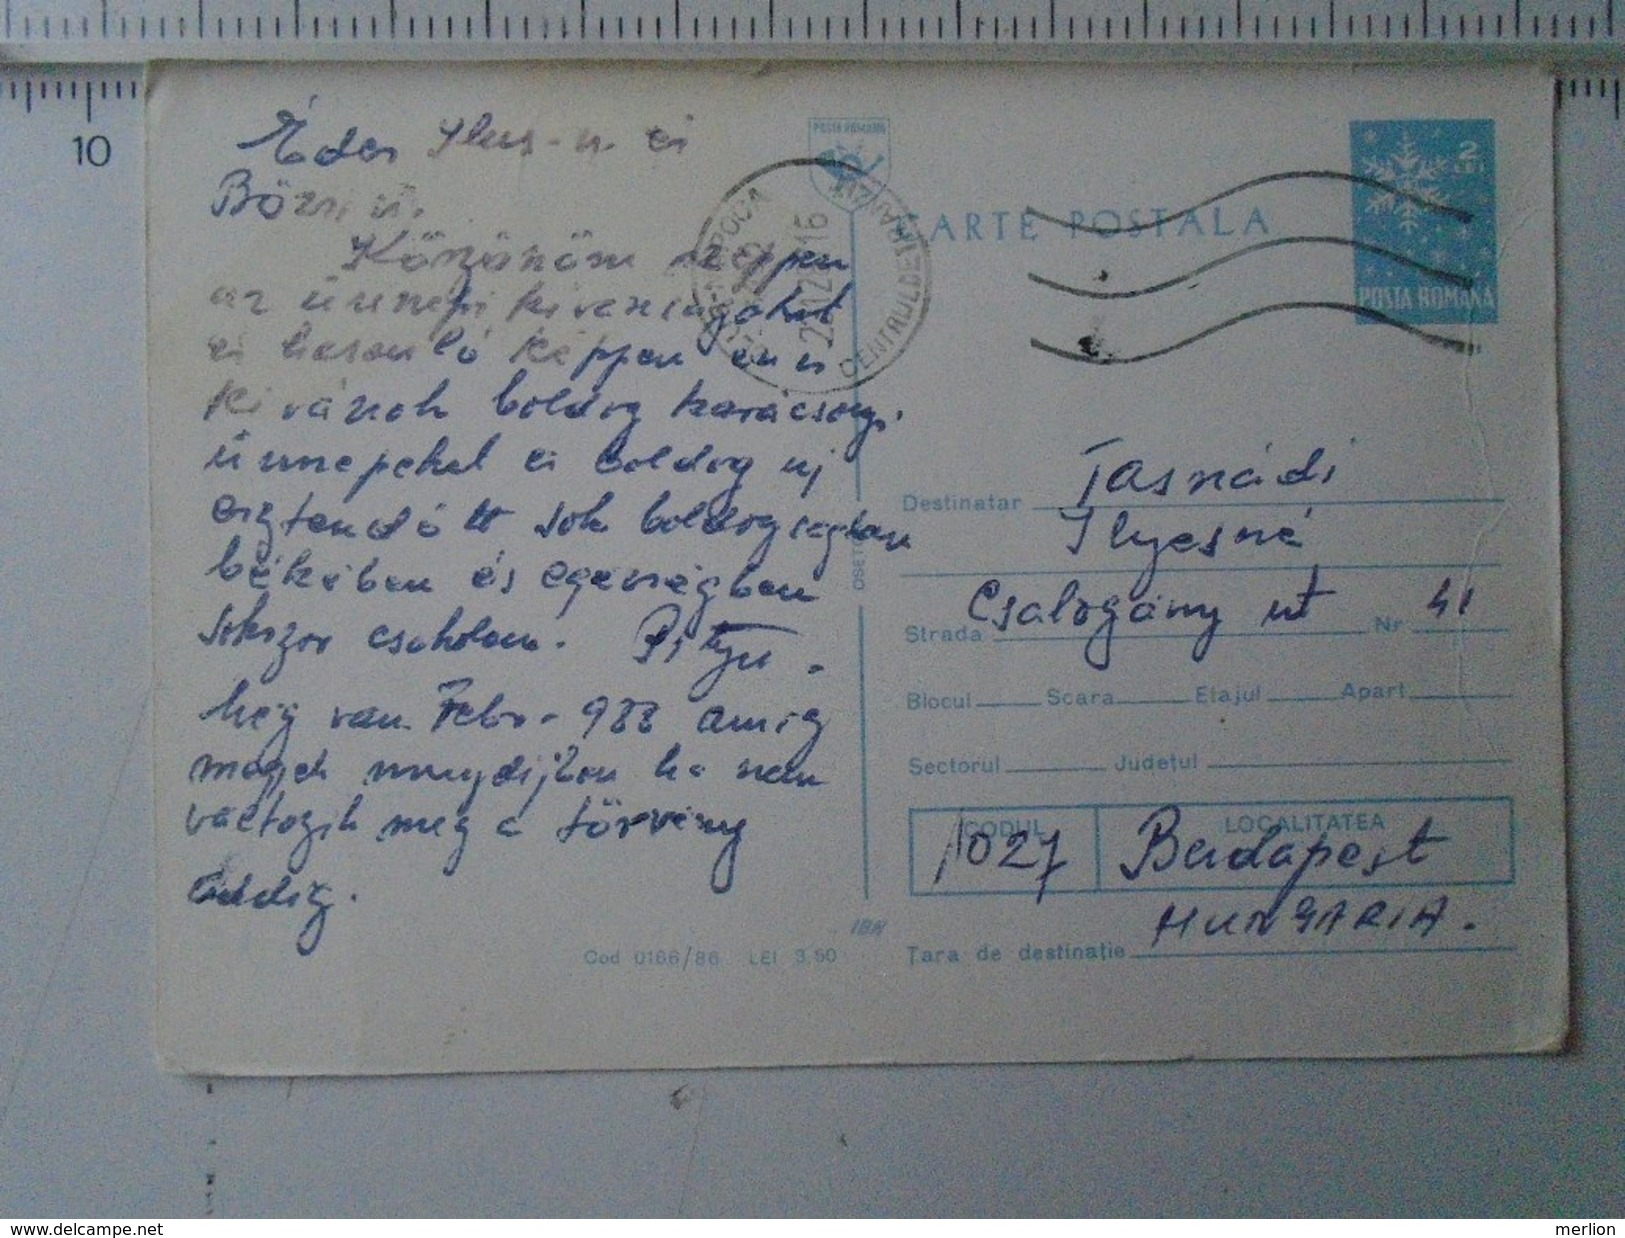 10
Édes Ilus-n. és
Bözsi n.
Köszönöm szeppen
az ünnepi kivansagokat
és hasonló képpen én is
kivánok boldog karácsonyi
ünnepeket és boldog uj
esztendőtt sok boldogságban
békében és egéségben
sokszor csokolom. Pityu.
még van Febr-988 amig
megyek nyugdijban ha nem
vactozik meg a törvény
addig.
POSTA ROMANA
CARTE POSTALA
2 LEI
POSTA ROMANA
CLUJ-NAPOCA
CENTRUL DE TRANZIT
Destinatar Tasnádi
Ilyesné
Strada Csalogány ut Nr 41
Blocul Scara Etajul Apart
Sectorul Județul
CODUL LOCALITATEA
1027 Budapest
Țara de destinație HUNGARIA.
Cod 0166/86 LEI 3,50
www.delcampe.net
merlion